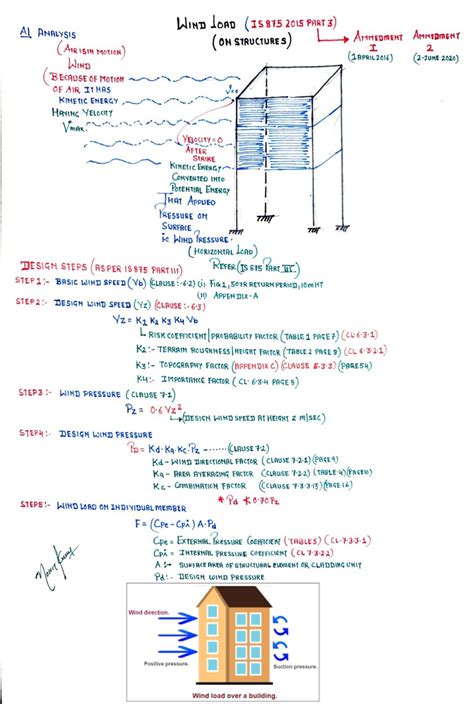 WIND LOAD (IS 875 2015 PART 3)
(ON STRUCTURES)
AMMEDMENT 1
(1 APRIL 2016)
AMMEDMENT 2
(2-JUNE 2020)
A) ANALYSIS
(AIR IS IN MOTION)
WIND
(BECAUSE OF MOTION
OF AIR IT HAS
KINETIC ENERGY
HAVING VELOCITY
Vmax
VELOCITY = 0
AFTER
STRIKE
KINETIC ENERGY
CONVERTED INTO
POTENTIAL ENERGY
THAT APPLIED
PRESSURE ON
SURFACE
ie WIND PRESSURE
(HORIZONTAL LOAD)
REFER (IS 875 PART III)
DESIGN STEPS (AS PER IS 875 PART III)
STEP 1:- BASIC WIND SPEED (Vb) (CLAUSE:-6.2) (i) Fig 1, 50YR RETURN PERIOD, 10m HT
(ii) APPENDIX-A
STEP 2:- DESIGN WIND SPEED (Vz) (CLAUSE:-6.3)
Vz = K1 K2 K3 K4 Vb
RISK COEFFICIENT | PROBABILITY FACTOR (TABLE 1 PAGE 7) (CL 6.3.1)
K2:- TERRAIN ROUGHNESS | HEIGHT FACTOR (TABLE 2 PAGE 8) (CL 6.3.2.1)
K3:- TOPOGRAPHY FACTOR (APPENDIX C) (CLAUSE 6.3.3) (PAGE 54)
K4:- IMPORTANCE FACTOR (CL 6.3.4 PAGE 8)
STEP 3:- WIND PRESSURE (CLAUSE 7.1)
Pz = 0.6 Vz²
DESIGN WIND SPEED AT HEIGHT Z m|SEC)
STEP 4:- DESIGN WIND PRESSURE
PD = Kd. Ka. Kc. Pz ------(CLAUSE 7.2)
Kd - WIND DIRECTIONAL FACTOR (CLAUSE 7.2.1) (PAGE 9)
Ka - AREA AVERAGING FACTOR (CLAUSE 7.2.2) (TABLE-4) (PAGE 10)
Kc - COMBINATION FACTOR (CLAUSE 7.3.3.13) (PAGE 16)
* Pd ≮ 0.70 Pz
STEP 5:- WIND LOAD ON INDIVIDUAL MEMBER
F = (Cpe - Cpi) A. Pd
Cpe = EXTERNAL PRESSURE COEFFICIENT (TABLE 5) (CL-7.3.3.1)
Cpi = INTERNAL PRESSURE COEFFICIENT (CL 7.3.2.2)
A :- SURFACE AREA OF STRUCTURAL ELEMENT OR CLADDING UNIT
Pd:- DESIGN WIND PRESSURE
Wind direction.
Positive pressure.
Suction pressure.
Wind load over a building.